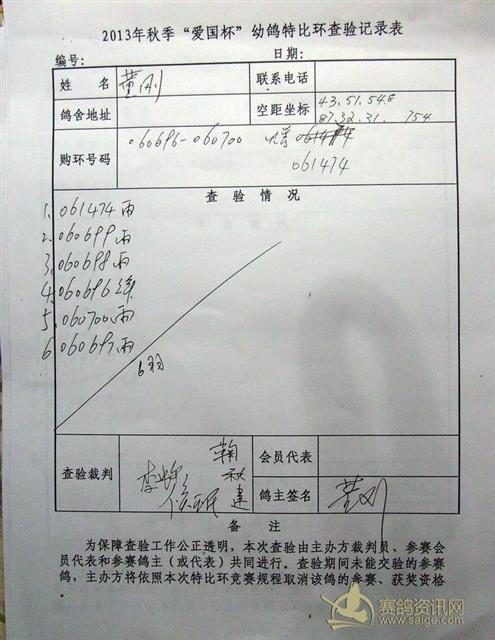 2013年秋季“爱国杯”幼鸽特比环查验记录表
编号: 日期:
姓 名 董刚 联系电话
鸽舍地址 空距坐标 43.51.548
87.32.31. 754
购环号码 060696-060700
061474
查 验 情 况
1. 061474 雨
2. 060699 雨
3. 060698 雨
4. 060696 绛
5. 060700 雨
6. 060697 雨
6羽
查验裁判 鞠秋建 会员代表
李 侯 鸽主签名 董刚
备 注
为保障查验工作公正透明，本次查验由主办方裁判员、参赛会
员代表和参赛鸽主（或代表）共同进行。查验期间未能交验的参赛
鸽，主办方将依照本次特比环竞赛规程取消该鸽的参赛、获奖资格
赛鸽资讯网
www.saige.com